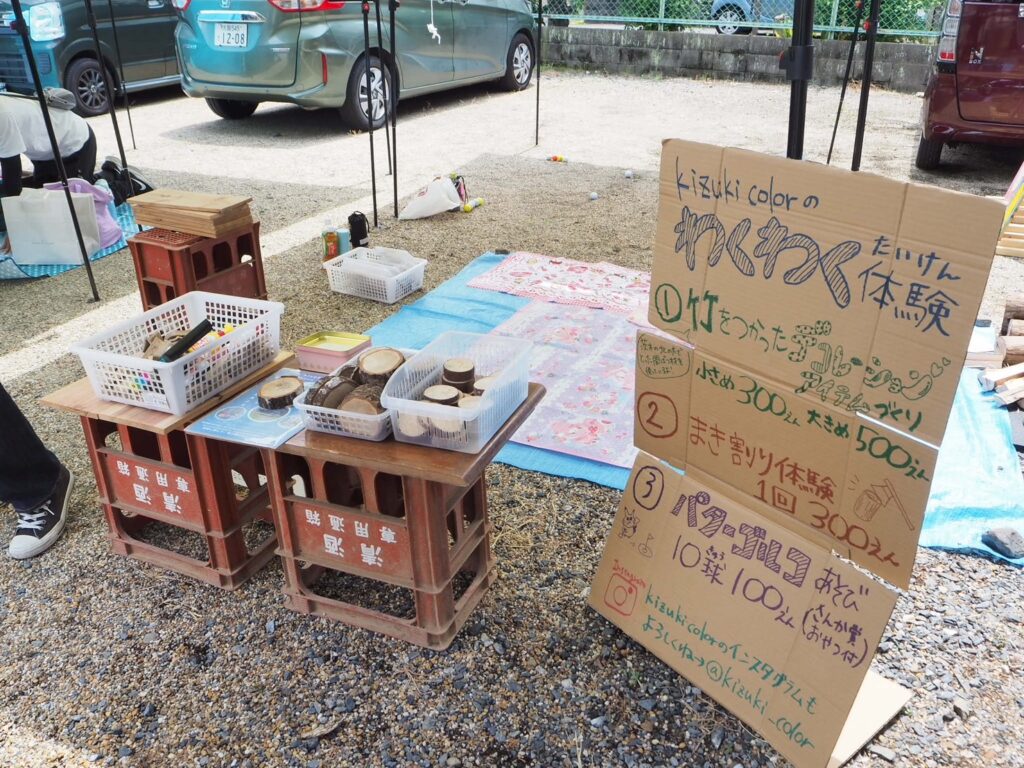 12-08
N
BOX
kizuki colorの
わくわく
たいけん
体験
①竹をつかった
デコレーション
アイテムづくり
小さめ300えん 大きめ500えん
②まき割り体験
1回 300えん
③パターゴルフあそび
10球 100えん
(さんか賞
おやつ付)
Instagram
kizuki colorのインスタグラムも
よろしくねっ@kizuki_color
清酒
専用通箱
清酒
専用通箱